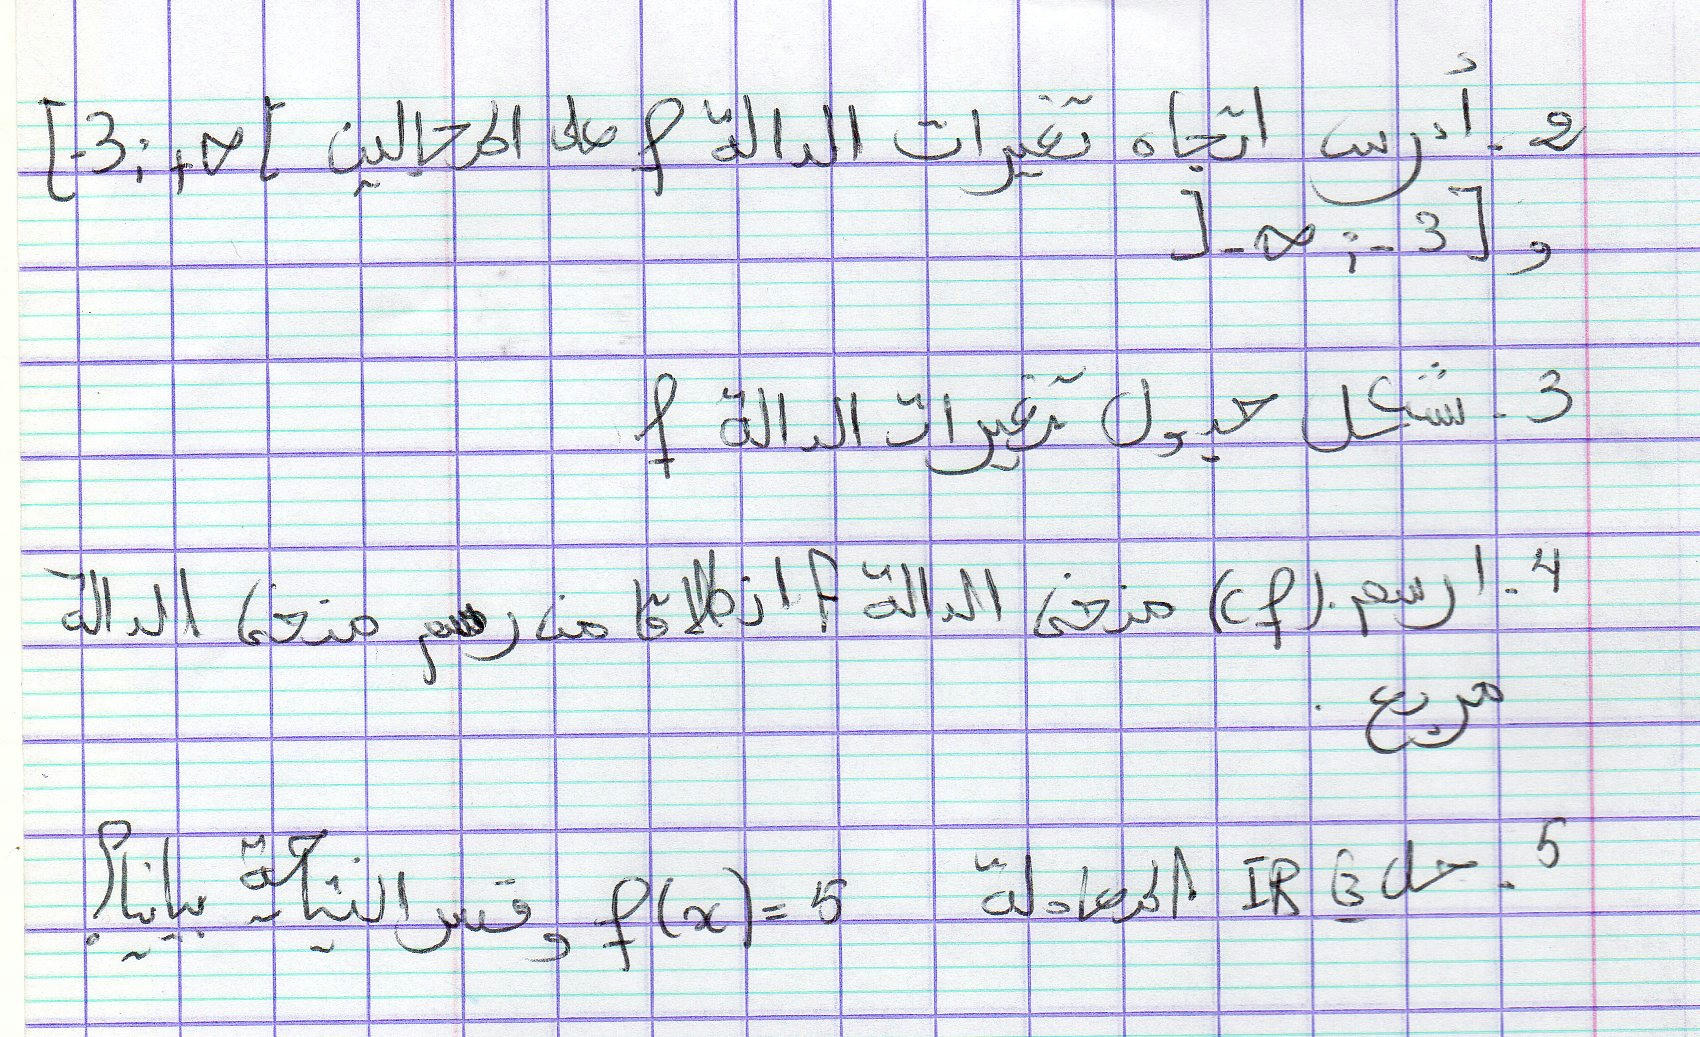 2. أدرس اتجاه تغيرات الدالة f على المجالين [-3; +∞[
و ]-∞; -3]
3. شكل جدول تغيرات الدالة f
4. ارسم (Cf) منحنى الدالة f انطلاقا من رسم منحنى الدالة
مربع .
5. حل في IR المعادلة f(x) = 5 وفسر النتيجة بيانيا؟